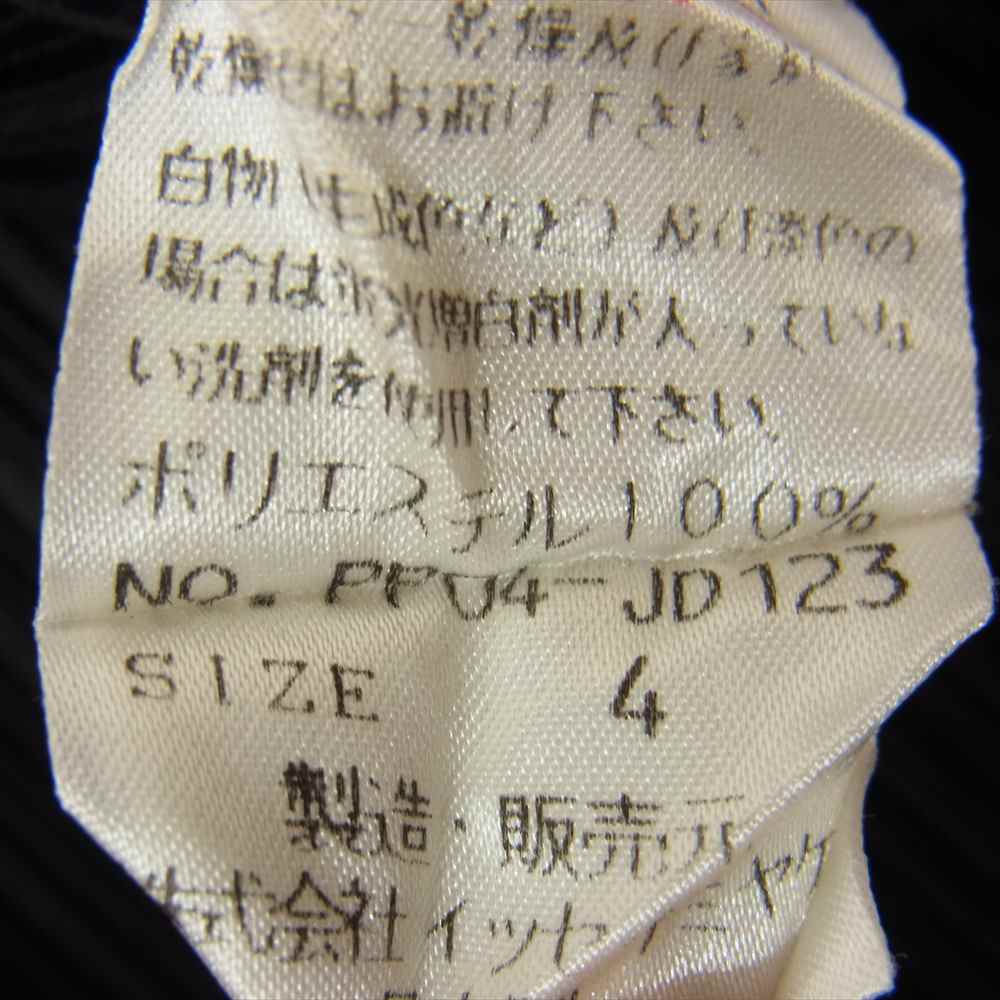 乾燥及び
乾燥はお避け下さい。
白物(生成色など)及び淡色の
場合は蛍光増白剤が入っていな
い洗剤を使用して下さい。
ポリエステル100%
NO. PP04-JD123
SIZE 4
製造・販売元
株式会社イッセイミヤケ